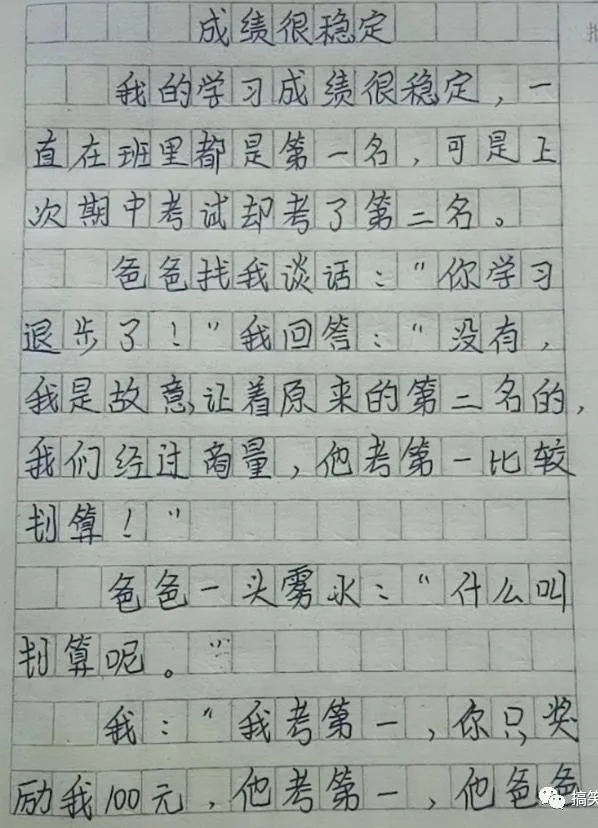 成绩很稳定
我的学习成绩很稳定，一
直在班里都是第一名，可是上
次期中考试却考了第二名。
爸爸找我谈话：“你学习
退步了！”我回答：“没有，
我是故意让着原来的第二名的，
我们经过商量，他考第一比较
划算！”
爸爸一头雾水：“什么叫
划算呢。”
我：“我考第一，你只奖
励我100元，他考第一，他爸爸
搞笑